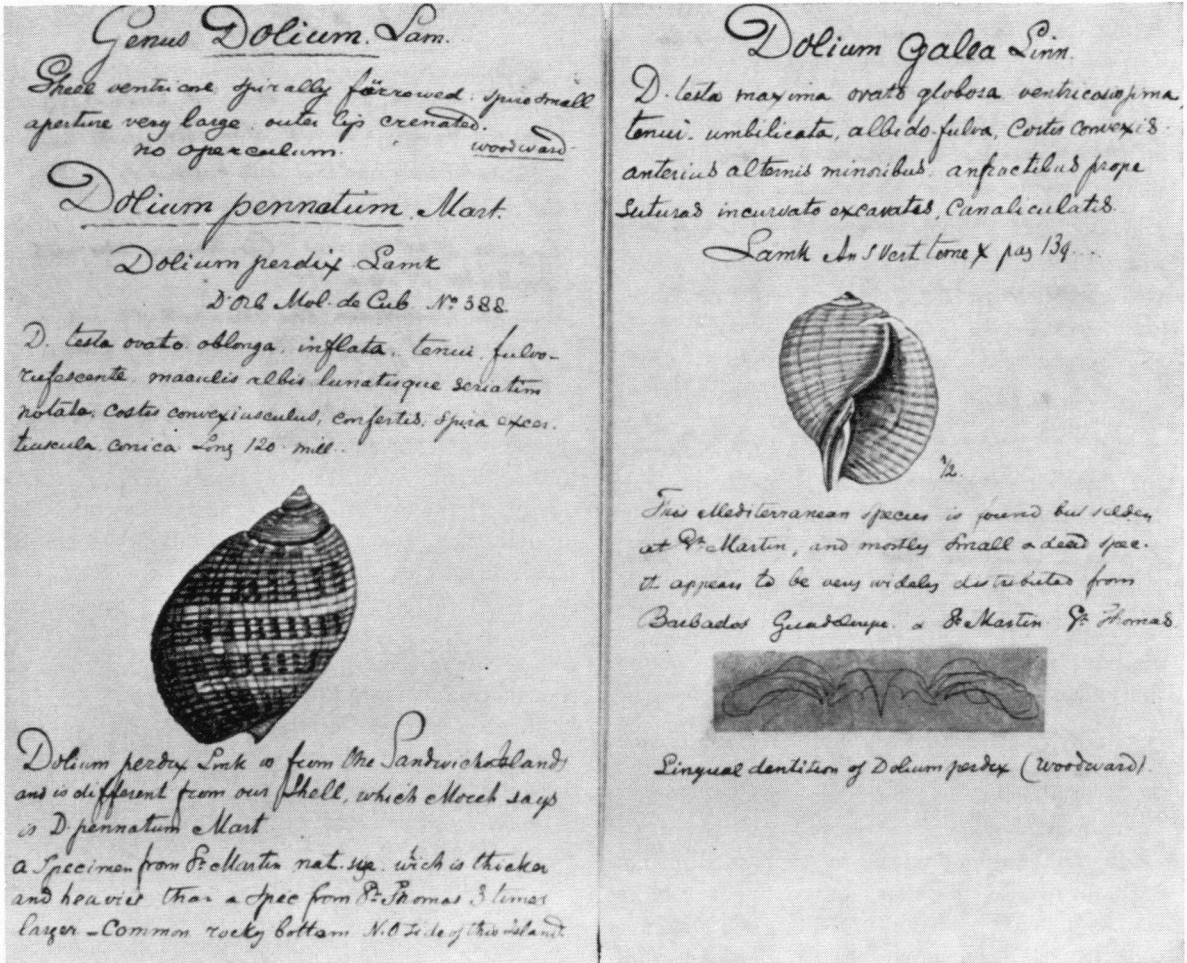 Genus Dolium. Lam.
Shell ventricose spirally furrowed: spire small
aperture very large. outer lip crenated.
no operculum. woodward
Dolium pennatum. Mart.
Dolium perdix Lamk
D'Orb Mol. de Cub No 388.
D. testa ovato oblonga, inflata, tenui, fulvo-
rufescente, maculis albis lunatisque seriatim
notata, costis convexiusculus, confertis, spira exser-
tiuscula conica Long 120 mill..
Dolium perdix Lmk is from the Sandwich Islands
and is different from our Shell, which Morch says
is D. pennatum Mart
a Specimen from St Martin nat. size. wich is thicker
and heavier than a spec from St Thomas 3 times
larger – Common rocky bottom N.O side of this Island
Dolium Galea Linn.
D. testa maxima ovato globosa ventricosissima,
tenui. umbilicata, albido-fulva, Costis convexis.
anterius alternis minoribus. anfractibus prope
suturas incurvato excavatis, Canaliculatis.
Lamk An S Vert tome X pag 139...
1/2.
This Mediterranean species is found but seldom
at St Martin, and mostly small & dead spec.
it appears to be very widely distributed from
Barbados Guadeloupe & St Martin St Thomas.
Lingual dentition of Dolium perdix (Woodward).